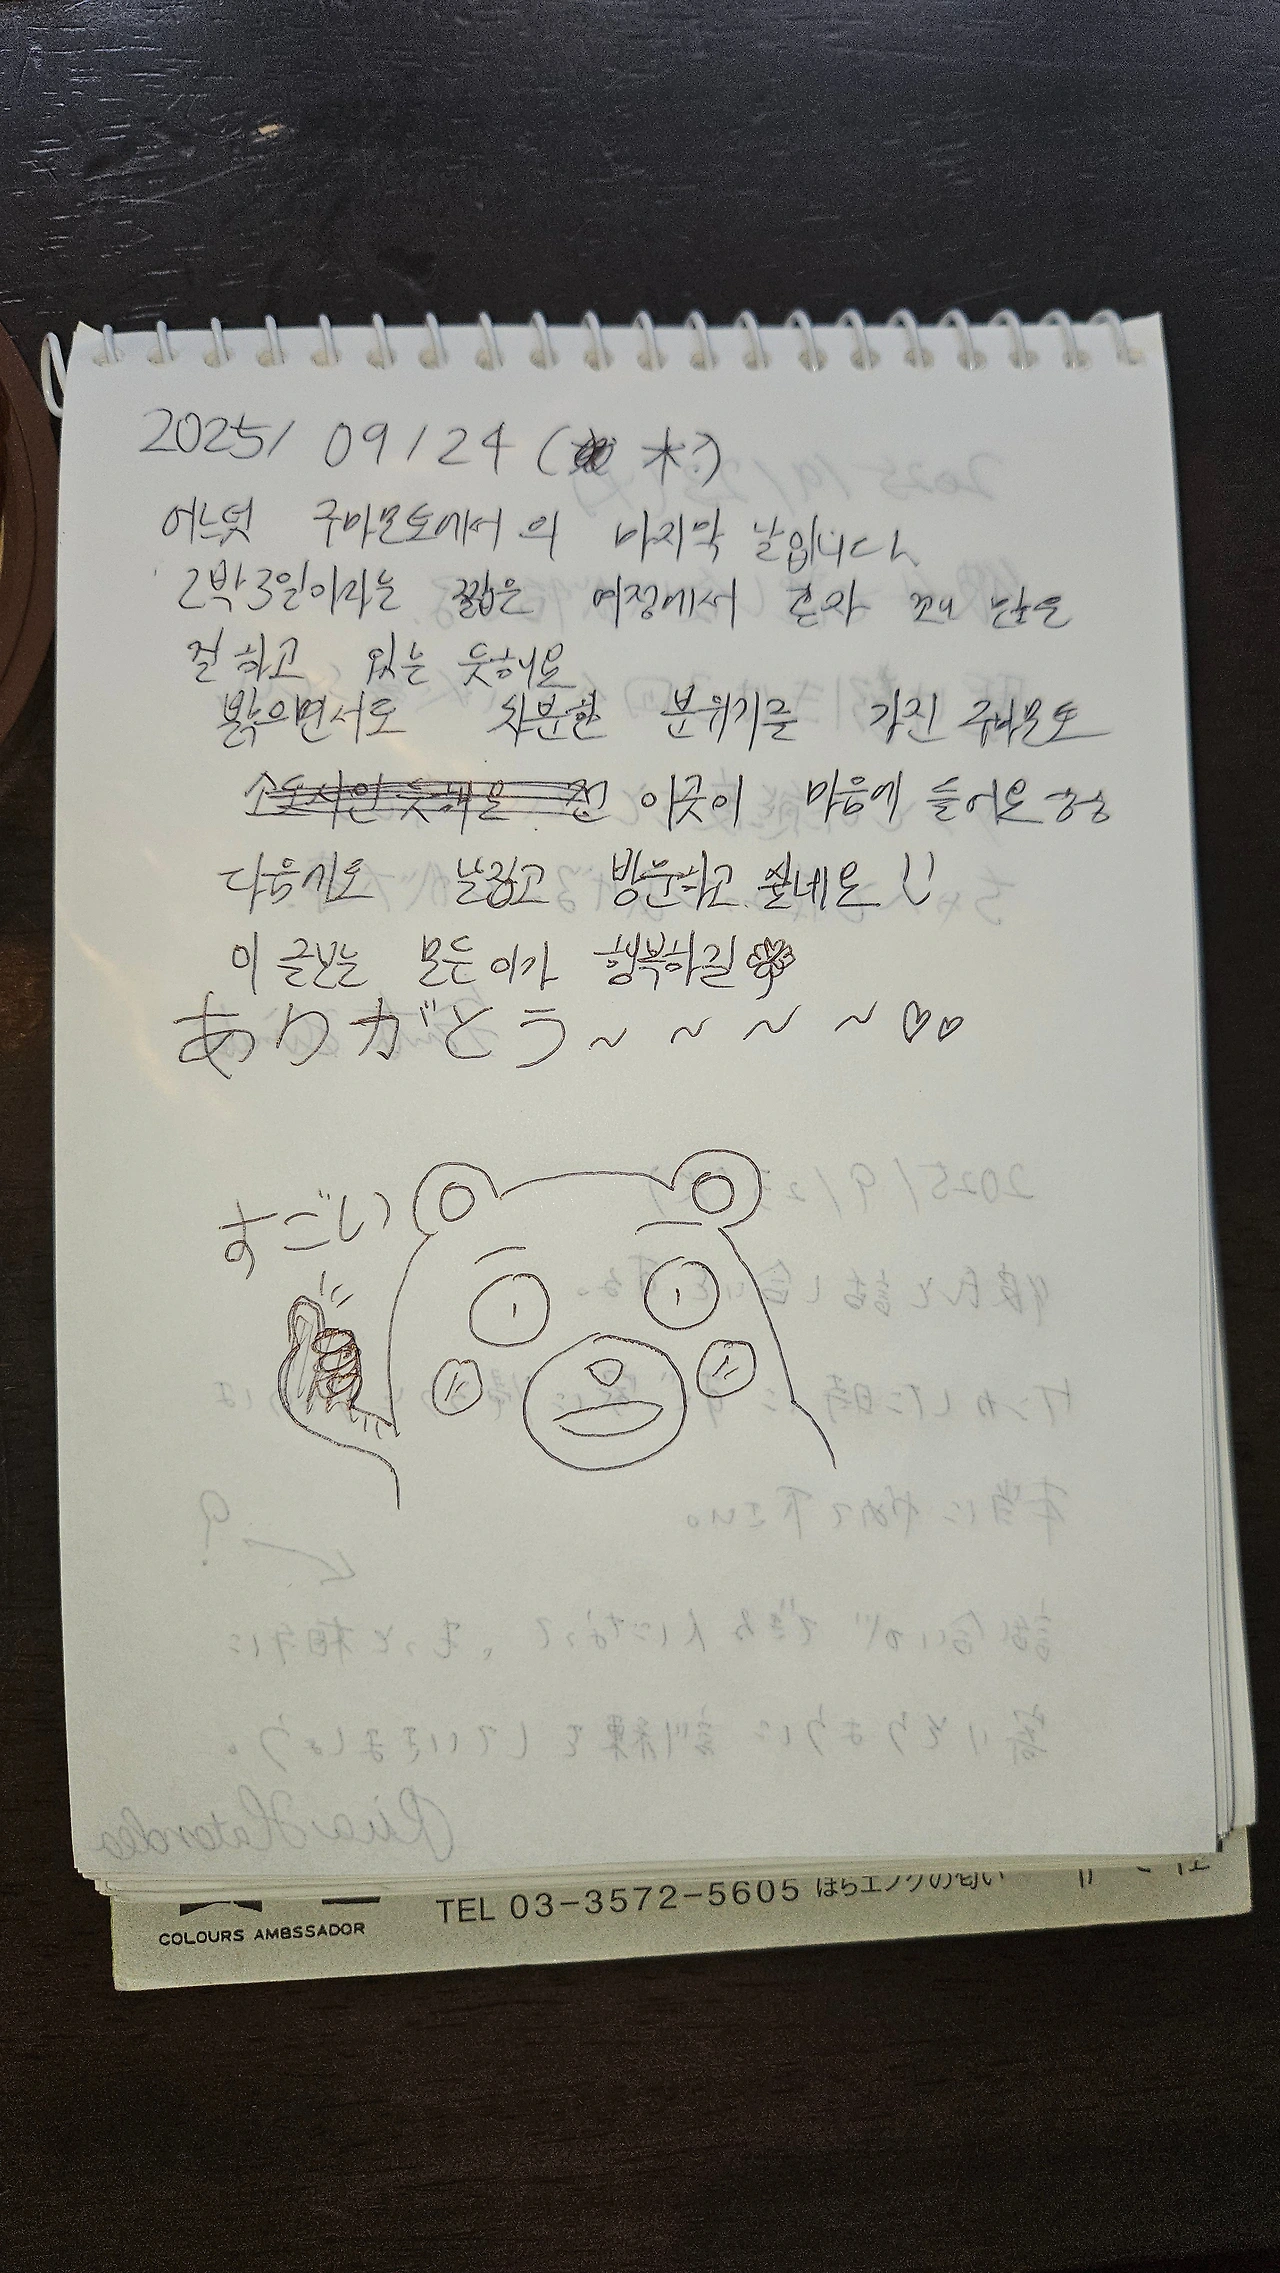 2025/ 09/24 (木)
어느덧 구마모토에서의 마지막 날입니다
2박3일이라는 짧은 여정에서 혼자
잘 하고 있는 듯해요
밝으면서도 차분한 분위기를 가진 구마모토
소도시인 듯해요 전 이곳이 마음에 들어요 ㅎㅎ
다음기도 방문하고 싶네요 !!
이 글보는 모든이가 행복하길
ありがとう~~~~♡♡
すごい
COLOURS AMBSSADOR
TEL 03-3572-5605